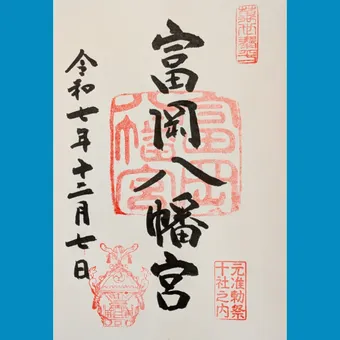 元准勅祭
十社之内
富岡八幡宮
富岡
八幡宮
令和七年十二月七日